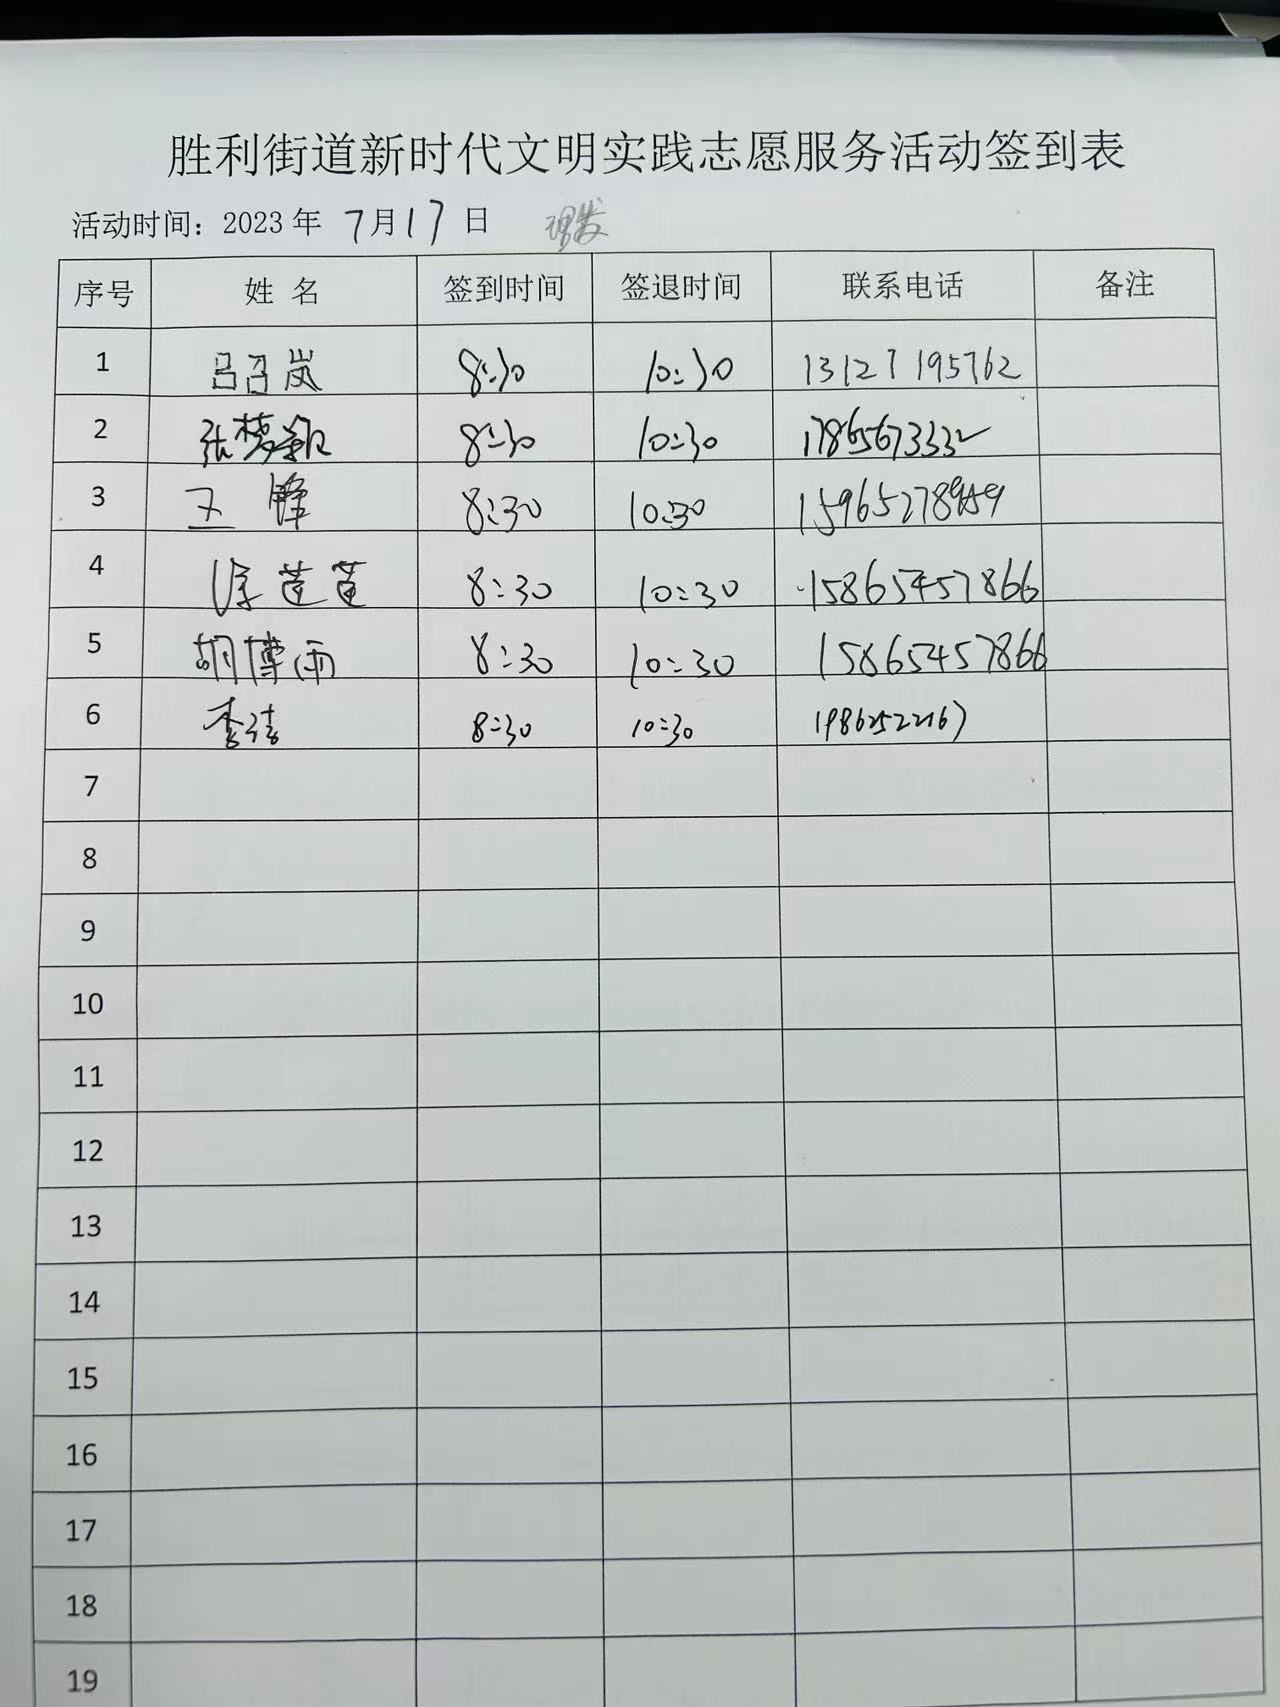 胜利街道新时代文明实践志愿服务活动签到表
活动时间：2023 年 7月17日 理发
序号 姓 名 签到时间 签退时间 联系电话 备注
1 吕召岚 8:30 10:30 13127195762
2 张梦 8:30 10:30 17865673332
3 王 锋 8:30 10:30
4 徐莲莲 8:30 10:30 15865457866
5 胡博雨 8:30 10:30 15865457866
6 李 8:30 10:30 19862522167
7
8
9
10
11
12
13
14
15
16
17
18
19